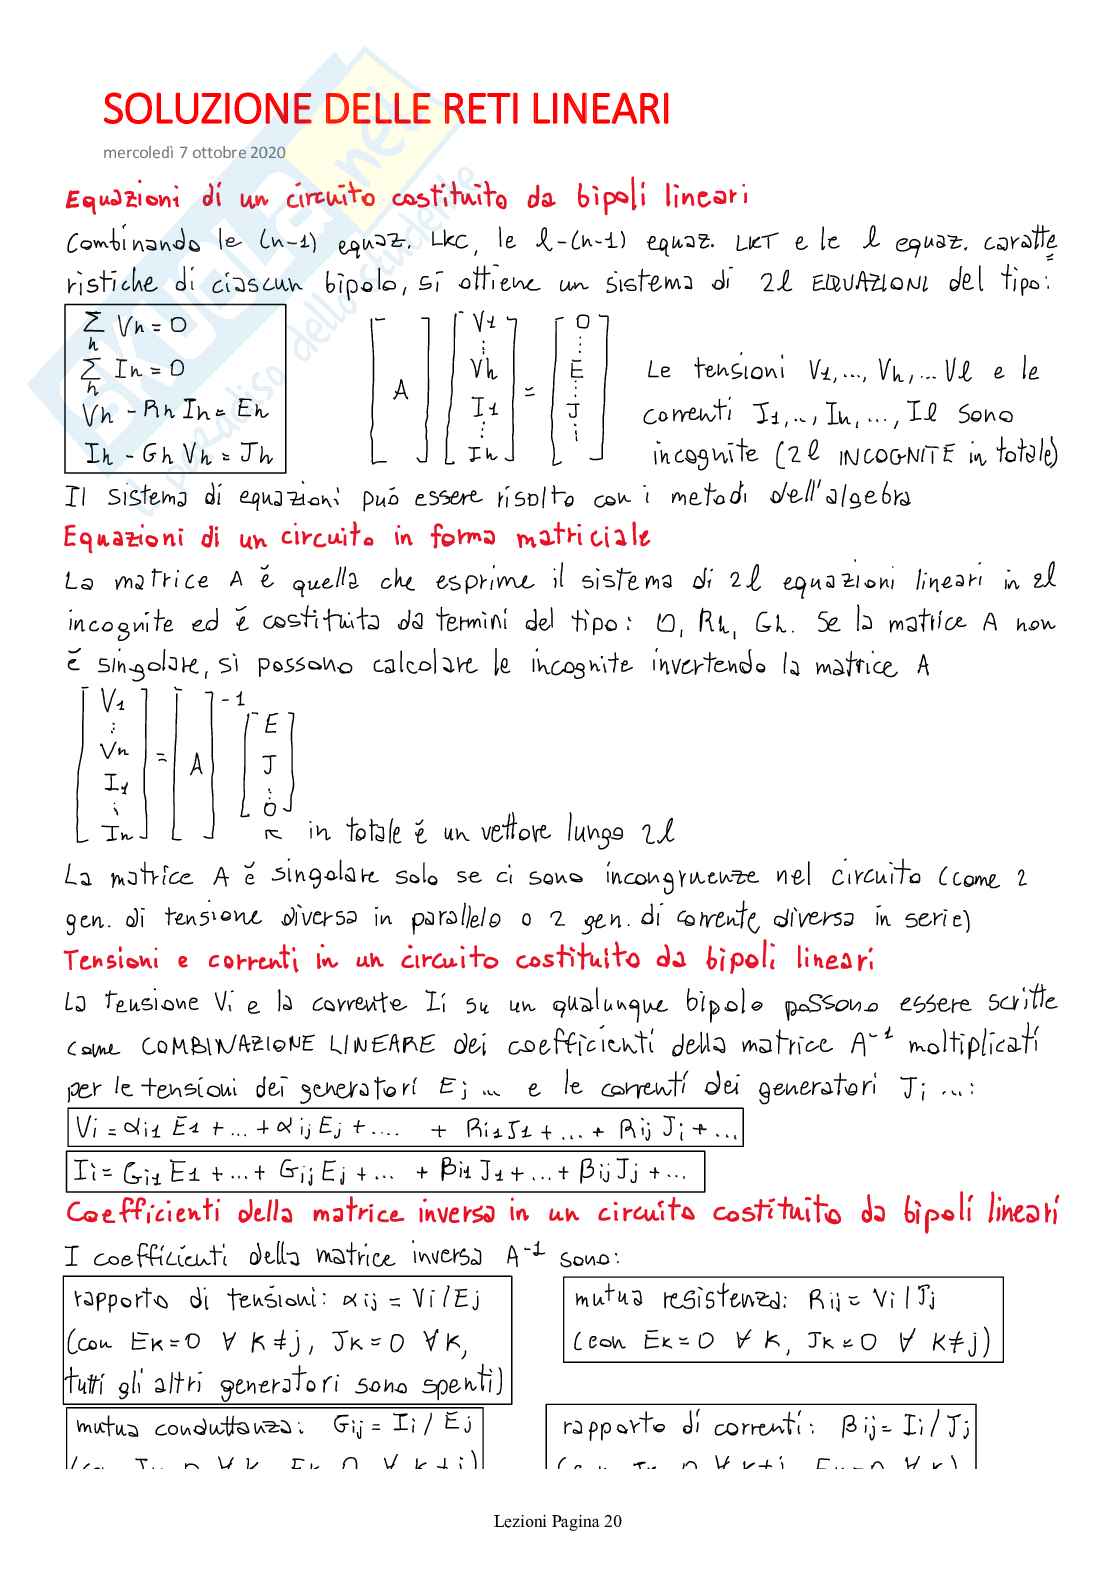 SOLUZIONE DELLE RETI LINEARI
mercoledì 7 ottobre 2020
Equazioni di un circuito costituito da bipoli lineari
Combinando le (n-1) equaz. LKC, le l-(n-1) equaz. LKT e le l equaz. caratte
ristiche di ciascun bipolo, si ottiene un sistema di 2l EQUAZIONI del tipo:
∑h Vh = 0
∑h Ih = 0
Vh - Rh Ih = Eh
Ih - Gh Vh = Jh
[A] [V1 ⋮ Vh I1 ⋮ Ih] = [0 ⋮ E ⋮ J ⋮]
Le tensioni V1,..., Vh,... Vl e le
correnti I1,.., Ih,..., Il sono
incognite (2l INCOGNITE in totale)
Il sistema di equazioni può essere risolto con i metodi dell'algebra
Equazioni di un circuito in forma matriciale
La matrice A è quella che esprime il sistema di 2l equazioni lineari in 2l
incognite ed è costituita da termini del tipo: 0, Rh, Gh. Se la matrice A non
è singolare, si possono calcolare le incognite invertendo la matrice A
[V1 ⋮ Vh I1 ⋮ Ih] = [A]-1 [E J ⋮ 0]
↖ in totale è un vettore lungo 2l
La matrice A è singolare solo se ci sono incongruenze nel circuito (come 2
gen. di tensione diversa in parallelo o 2 gen. di corrente diversa in serie)
Tensioni e correnti in un circuito costituito da bipoli lineari
La tensione Vi e la corrente Ii su un qualunque bipolo possono essere scritte
come COMBINAZIONE LINEARE dei coefficienti della matrice A-1 moltiplicati
per le tensioni dei generatori Ej ... e le correnti dei generatori Ji ...:
Vi = αi1 E1 + ... + αij Ej + .... + Ri1 J1 + ... + Rij Ji + ...
Ii = Gi1 E1 + ... + Gij Ej + ... + βi1 J1 + ... + βij Jj + ...
Coefficienti della matrice inversa in un circuito costituito da bipoli lineari
I coefficienti della matrice inversa A-1 sono:
rapporto di tensioni: αij = Vi/Ej
(con Ek=0 ∀ k≠j, Jk=0 ∀ k,
tutti gli altri generatori sono spenti)
mutua resistenza: Rij = Vi/Jj
(con Ek=0 ∀ k, Jk=0 ∀ k≠j)
mutua conduttanza: Gij = Ii/Ej
(con Jk=0 ∀ k, Ek=0 ∀ k≠j)
rapporto di correnti: βij = Ii/Jj
(con Jk=0 ∀ k≠j, Ek=0 ∀ k)
Lezioni Pagina 20
SKUOLA.net
il paradiso dello studente